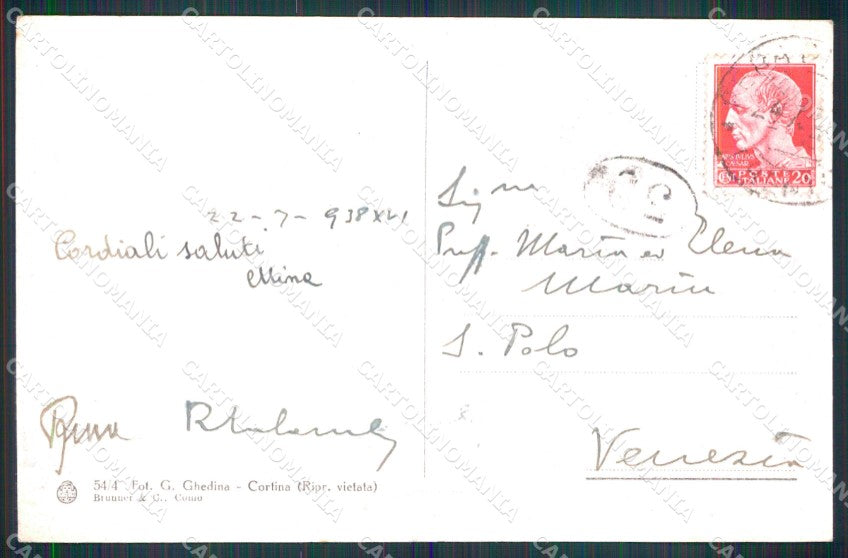 22-7-938 XVI
Cordiali saluti
Mina
54/4 Fot. G. Ghedina - Cortina (Ripr. vietata)
Brunner & C., Como
IVLIVS
CAESAR
POSTE
ITALIANE
20
Sig.ne
Proff. Maria ed Elena
Marin
S. Polo
Venezia
CARTOLINOMANIA